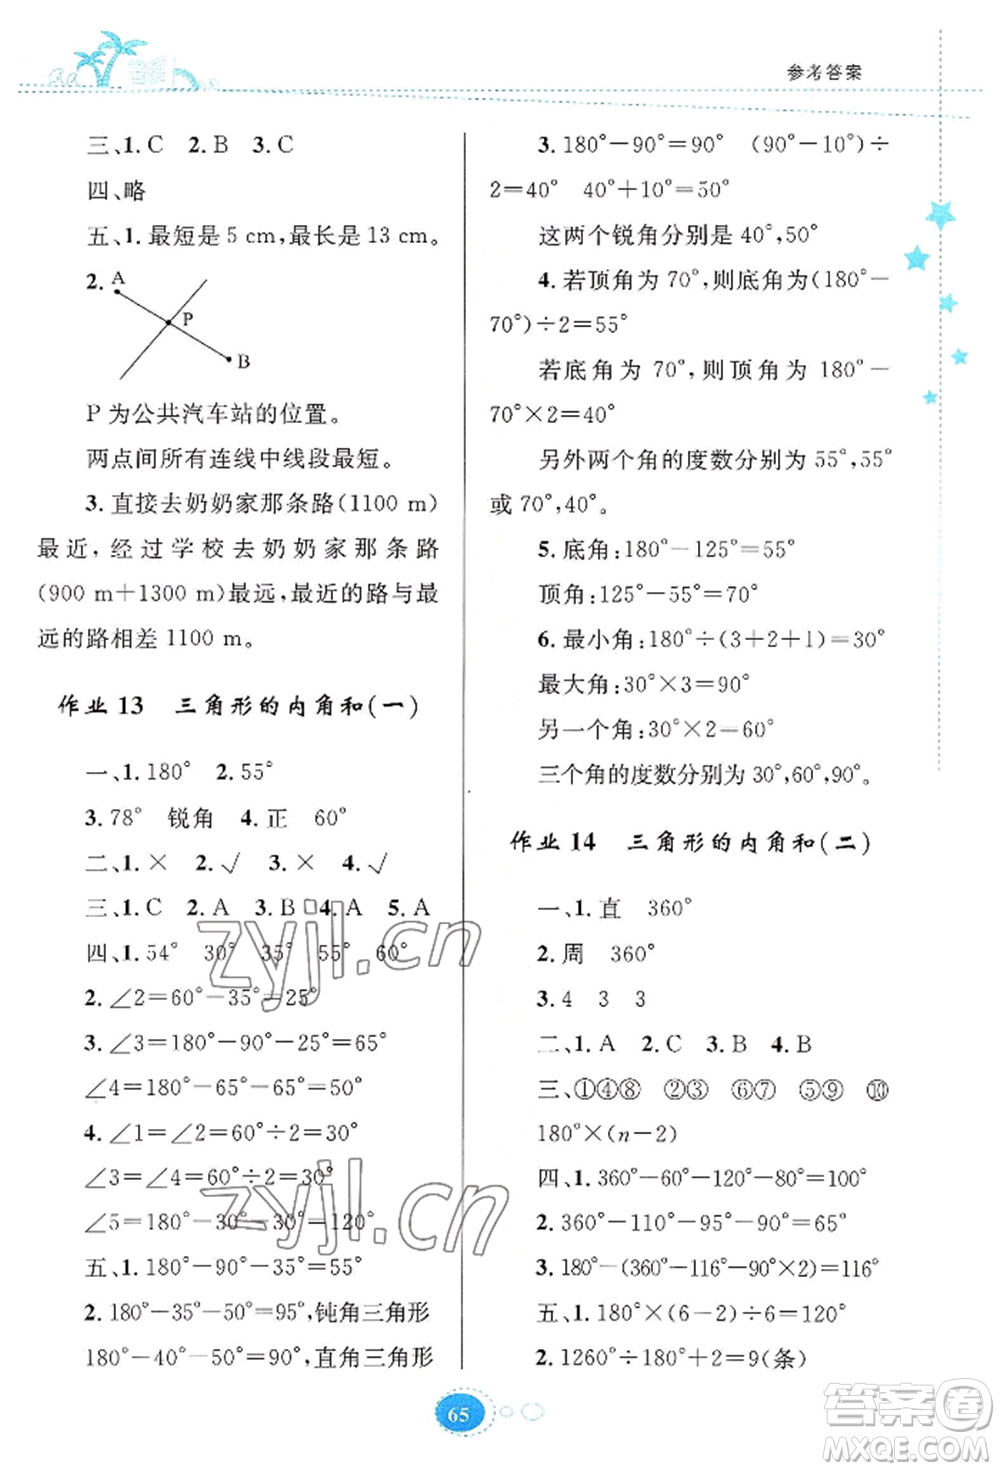 参考答案
三、1. C 2. B 3. C
四、略
五、1. 最短是 5 cm,最长是 13 cm。
2. A
P
B
P 为公共汽车站的位置。
两点间所有连线中线段最短。
3. 直接去奶奶家那条路(1100 m)
最近，经过学校去奶奶家那条路
(900 m＋1300 m)最远,最近的路与最
远的路相差 1100 m。
作业 13 三角形的内角和(一)
一、1. 180° 2. 55°
3. 78° 锐角 4. 正 60°
二、1. × 2. √ 3. × 4. √
三、1. C 2. A 3. B 4. A 5. A
四、1. 54° 30° 35° 55° 60°
2. ∠2＝60°－35°＝25°
3. ∠3＝180°－90°－25°＝65°
∠4＝180°－65°－65°＝50°
4. ∠1＝∠2＝60°÷2＝30°
∠3＝∠4＝60°÷2＝30°
∠5＝180°－30°－30°＝120°
五、1. 180°－90°－35°＝55°
2. 180°－35°－50°＝95°,钝角三角形
180°－40°－50°＝90°,直角三角形
3. 180°－90°＝90° (90°－10°)÷
2＝40° 40°＋10°＝50°
这两个锐角分别是 40°,50°
4. 若顶角为 70°,则底角为(180°－
70°)÷2＝55°
若底角为 70°,则顶角为 180°－
70°×2＝40°
另外两个角的度数分别为 55°,55°
或 70°,40°。
5. 底角:180°－125°＝55°
顶角:125°－55°＝70°
6. 最小角:180°÷(3＋2＋1)＝30°
最大角:30°×3＝90°
另一个角:30°×2＝60°
三个角的度数分别为 30°,60°,90°。
作业 14 三角形的内角和(二)
一、1. 直 360°
2. 周 360°
3. 4 3 3
二、1. A 2. C 3. B 4. B
三、①④⑧ ②③ ⑥⑦ ⑤⑨ ⑩
180°×(n－2)
四、1. 360°－60°－120°－80°＝100°
2. 360°－110°－95°－90°＝65°
3. 180°－(360°－116°－90°－90°)＝116°
五、1. 180°×(6－2)÷6＝120°
2. 1260°÷180°＋2＝9(条)
65
zyjl.cn
zyjl.cn
答案圈
MXQE.COM